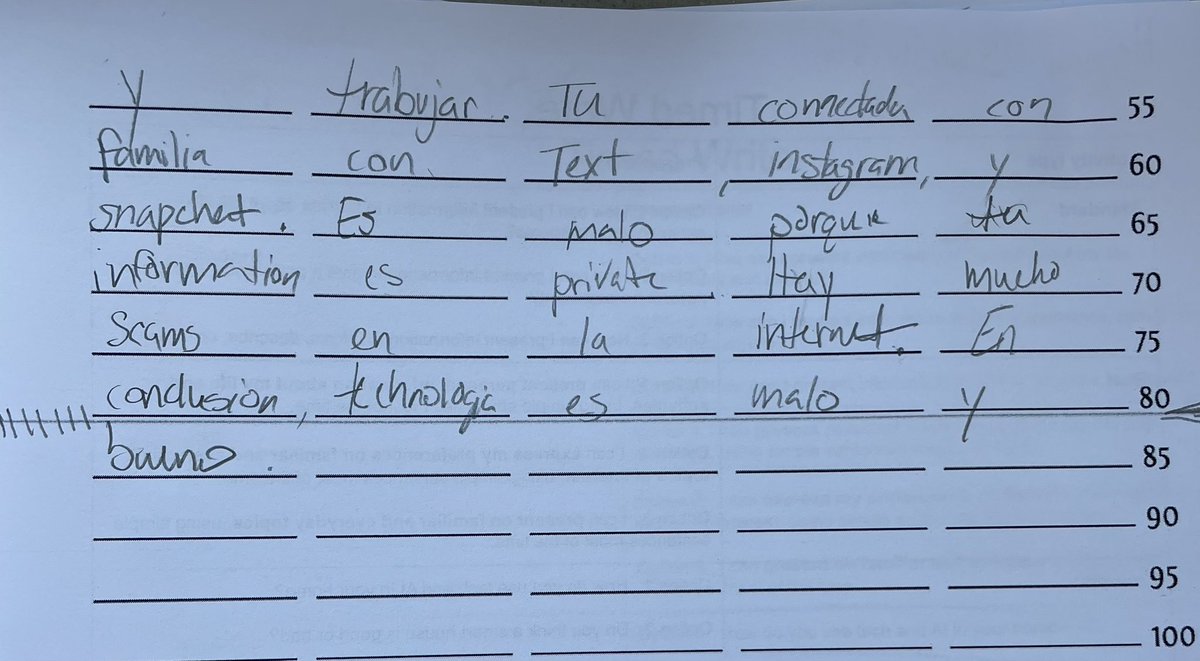 y trabujar. Tu connectada con 55
familia con Text, instagram, y 60
snapchat. Es malo porque tu 65
information es private. Hay mucho 70
Scams en la internet. En 75
conclusion, technologia es malo y 80
bueno. 85
90
95
100